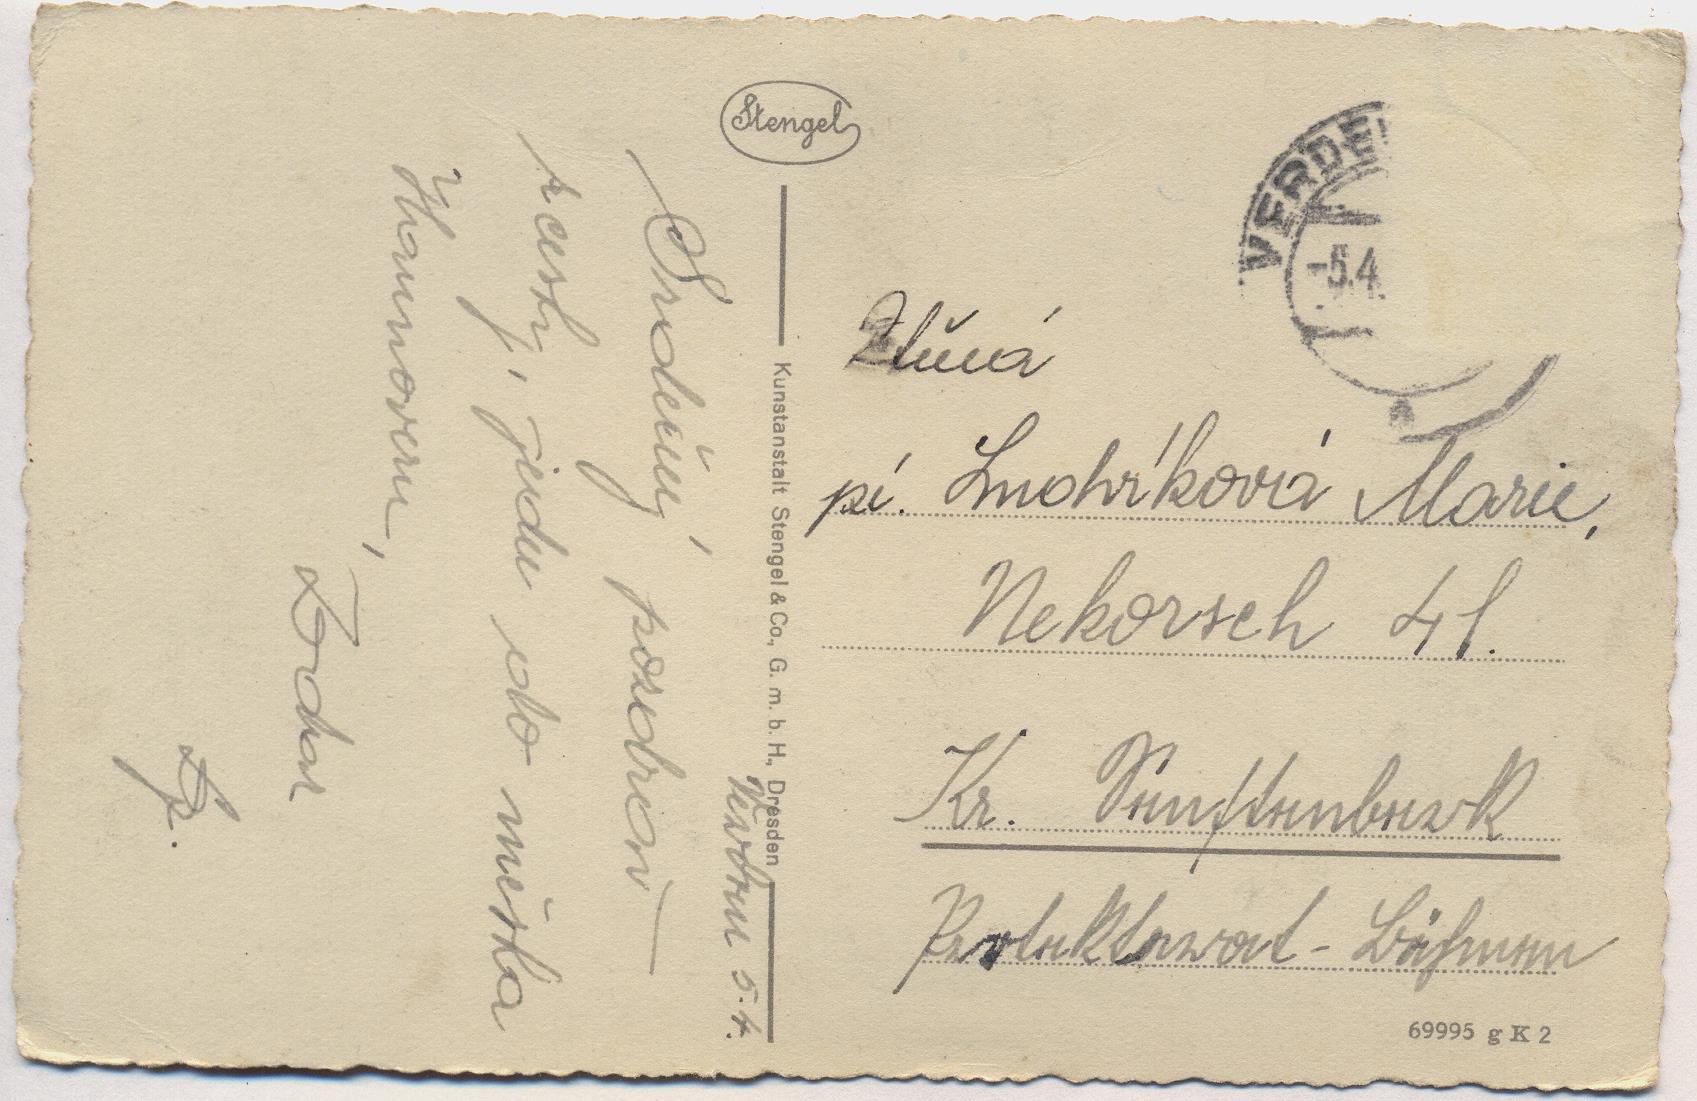 Stengel
Kunstanstalt Stengel & Co., G. m. b. H., Dresden
Verden 5.4.
Srdečný pozdrav
z cesty, jedu do města
Hannoveru,
Zdar
VERDE
-5.4.
Ctěná
pí. Smolíková Marie,
Nekorsch 41.
Kr. Senftenberk
Protektorat - Böhmen
69995 g K 2